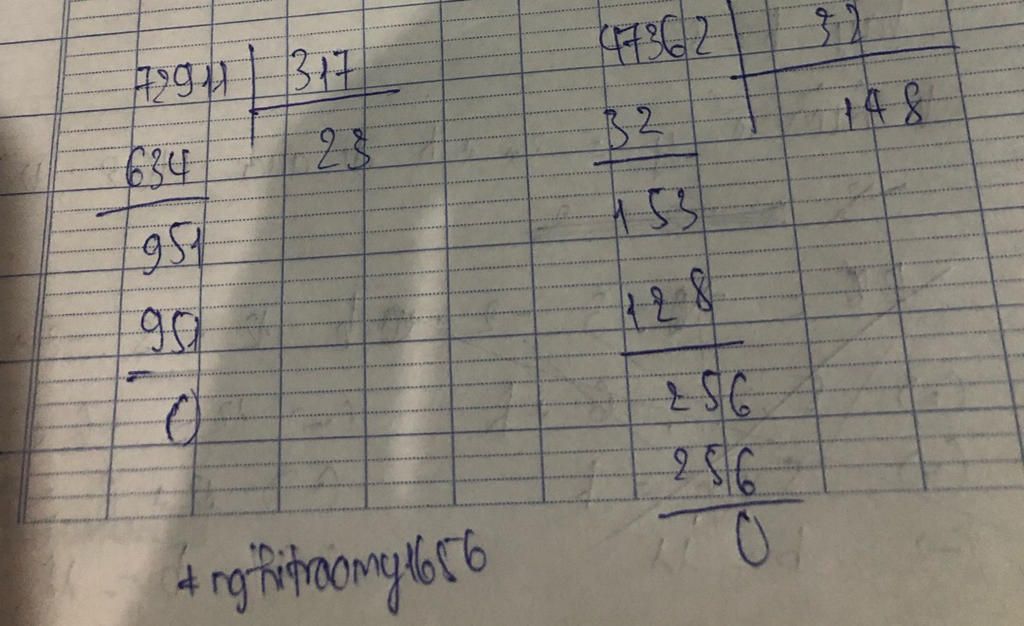 72911 317
23
634
951
951
0
47362 32
148
32
153
128
256
256
0